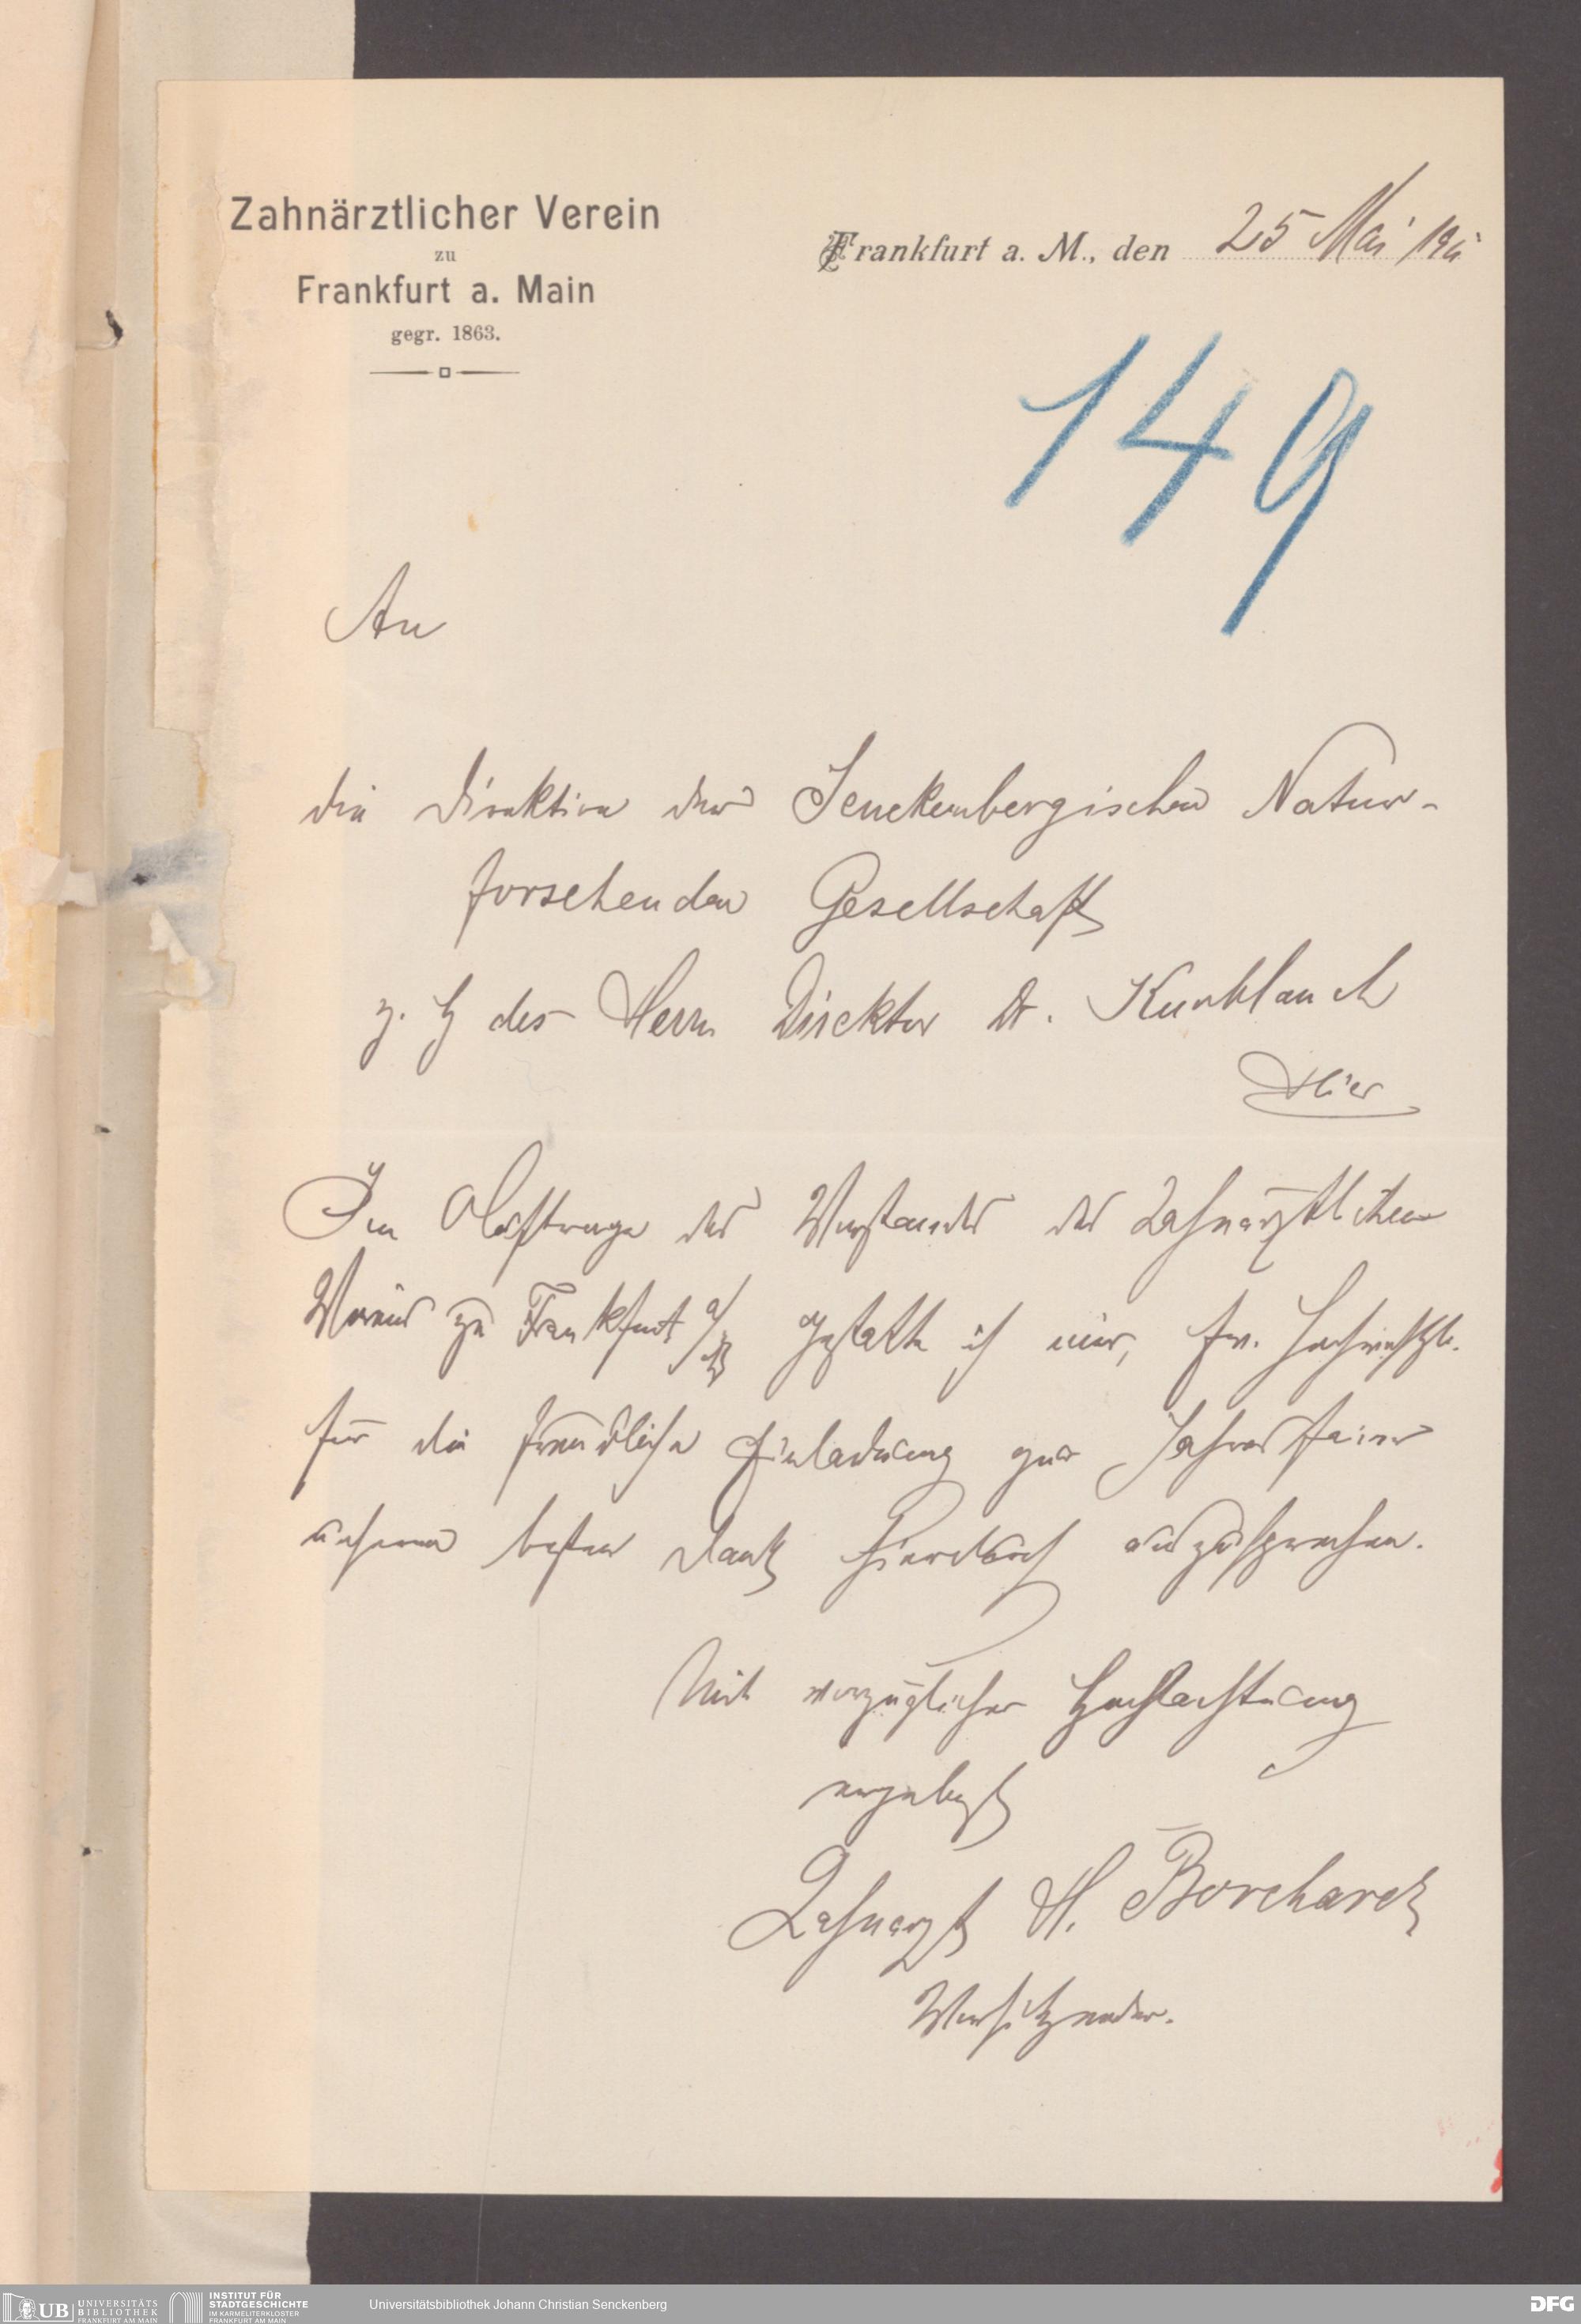 Zahnärztlicher Verein
zu
Frankfurt a. Main
gegr. 1863.
Frankfurt a. M., den 25 Mai
149
An
die Direktion der Senckenbergischen Natur-
forschenden Gesellschaft
z. H des Herrn Direktor Dr. Knoblauch
Hier
Im Auftrage des Vorstandes des Zahnärztlichen
Vereins zu Frankfurt a/M gestatte ich mir, Ew. Hochwohlgb.
für die freundliche Einladung zur Jahresfeier
unseren besten Dank hierdurch auszusprechen.
Mit vorzüglicher Hochachtung
ergebenst
Zahnarzt H. Borchardt
Vorsitzender.
UB UNIVERSITÄTS
BIBLIOTHEK
FRANKFURT AM MAIN
INSTITUT FÜR
STADTGESCHICHTE
IM KARMELITERKLOSTER
FRANKFURT AM MAIN
Universitätsbibliothek Johann Christian Senckenberg
DFG